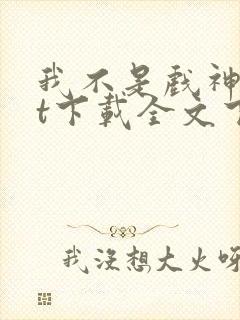 我不是戏神
t下载全文
我没想大火呀